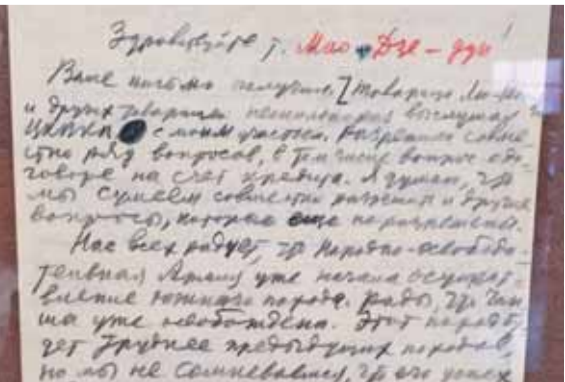 Здравствуйте т. Мао Дзе-дун!
Ваше письмо получил. Товарища Лю
и других товарищей Политбюро выслушал
ЦККПК с моим участием. Разрешили совме-
стно ряд вопросов, в том числе вопрос о до-
говоре на счет кредита. Я думаю, что
мы сумеем совместно разрешить и другие
вопросы, которые еще не разрешены.
Нас всех радует, что Народно-освободи-
тельная Армия уже начала осущест-
вление южного похода. Рады, что
уже освобождена. Этот поход бу-
дет труднее предыдущих походов,
но мы не сомневаемся, что его успех